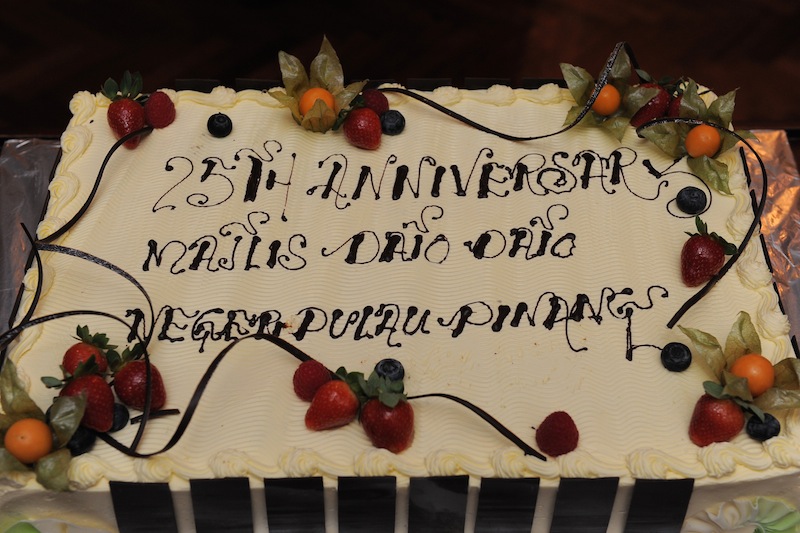 25TH ANNIVERSARY
MAJLIS DATO DATO
NEGERI PULAU PINANG